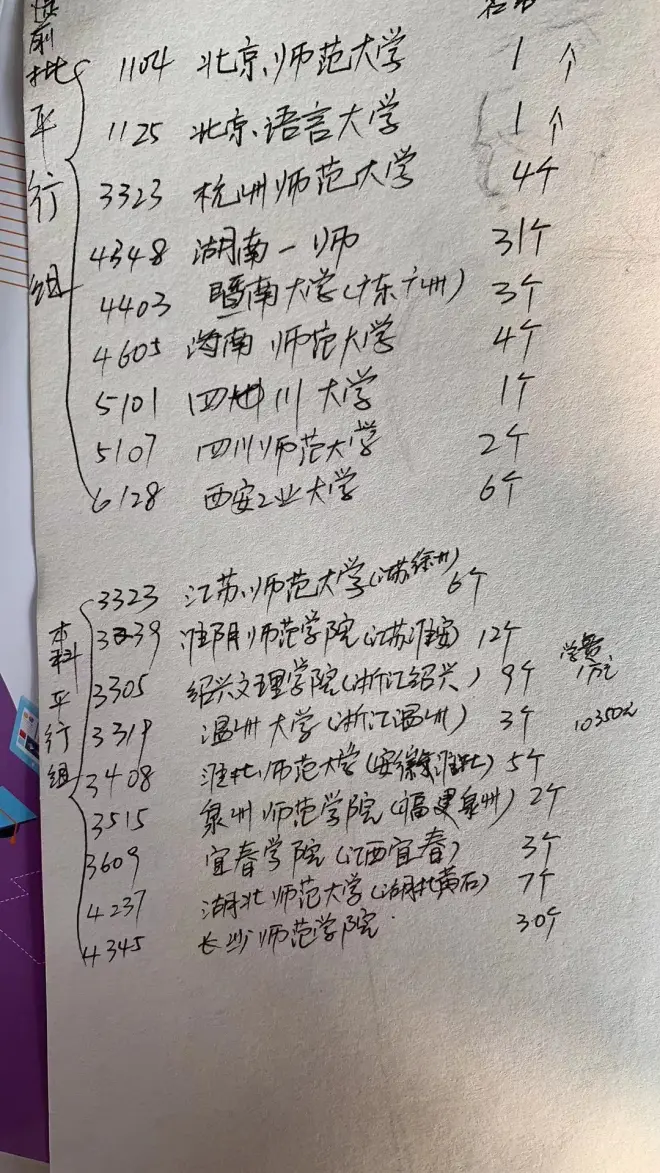 提前批
平行组
名
1104 北京师范大学 1个
1125 北京语言大学 1个
3323 杭州师范大学 4个
4348 湖南一师 31个
4403 暨南大学(广东广州) 3个
4605 海南师范大学 4个
5101 四川大学 1个
5107 四川师范大学 2个
6128 西安工业大学 6个
本科
平行组
3323 江苏师范大学(江苏徐州) 6个
3239 淮阴师范学院(江苏淮安) 12个
3305 绍兴文理学院(浙江绍兴) 9个 学费1万元
3319 温州大学(浙江温州) 3个 10350元
3408 淮北师范大学(安徽淮北) 5个
3515 泉州师范学院(福建泉州) 2个
3609 宜春学院(江西宜春) 3个
4237 湖北师范大学(湖北黄石) 7个
4345 长沙师范学院 30个